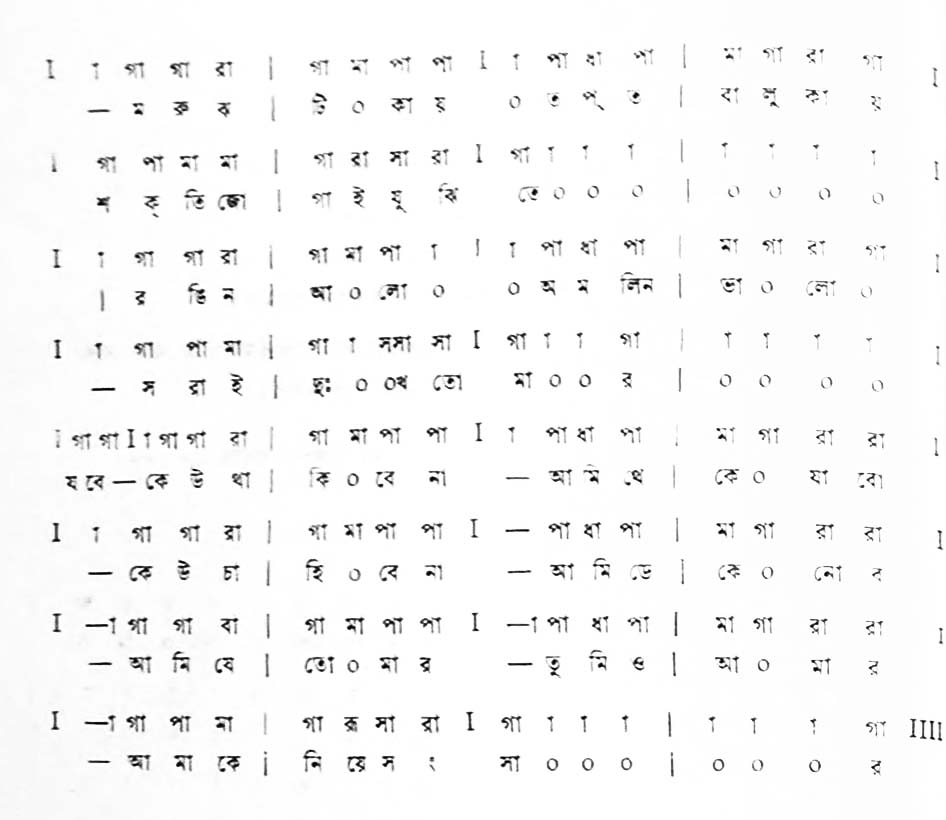 I া গা গা রা | গা মা পা পা I া পা ধা পা | মা গা রা গা I
— ম রু ব | টি ০ কা য় ০ ত প্ ত | বা লু কা য়
I গা পা মা মা | গা রা সা রা I গা া া া | া া া া I
শ ক্ তি জো | গা ই যু ঝি তে ০ ০ ০ | ০ ০ ০ ০
I া গা গা রা | গা মা পা া I া পা ধা পা | মা গা রা গা I
| র ঙি ন | আ ০ লো ০ ০ অ ম লিন | ভা ০ লো ০
I া গা পা মা | গা া সসা সা I গা া া গা | া া া া I
— স রা ই | দুঃ ০ ০খ তো মা ০ ০ র | ০ ০ ০ ০
I গা গা I া গা গা রা | গা মা পা পা I া পা ধা পা | মা গা রা রা I
য বে — কে উ থা | কি ০ বে না — আ মি থে | কে ০ যা বো
I া গা গা রা | গা মা পা পা I — পা ধা পা | মা গা রা রা I
— কে উ চা | হি ০ বে না — আ মি ডে | কে ০ নো ব
I —া গা গা বা | গা মা পা পা I —া পা ধা পা | মা গা রা রা I
— আ মি যে | তো ০ মা র — তু মি ও | আ ০ মা র
I —া গা পা মা | গা রূ সা রা I গা া া া | া া া গা IIII
— আ মা কে | নি য়ে স ং সা ০ ০ ০ | ০ ০ ০ র